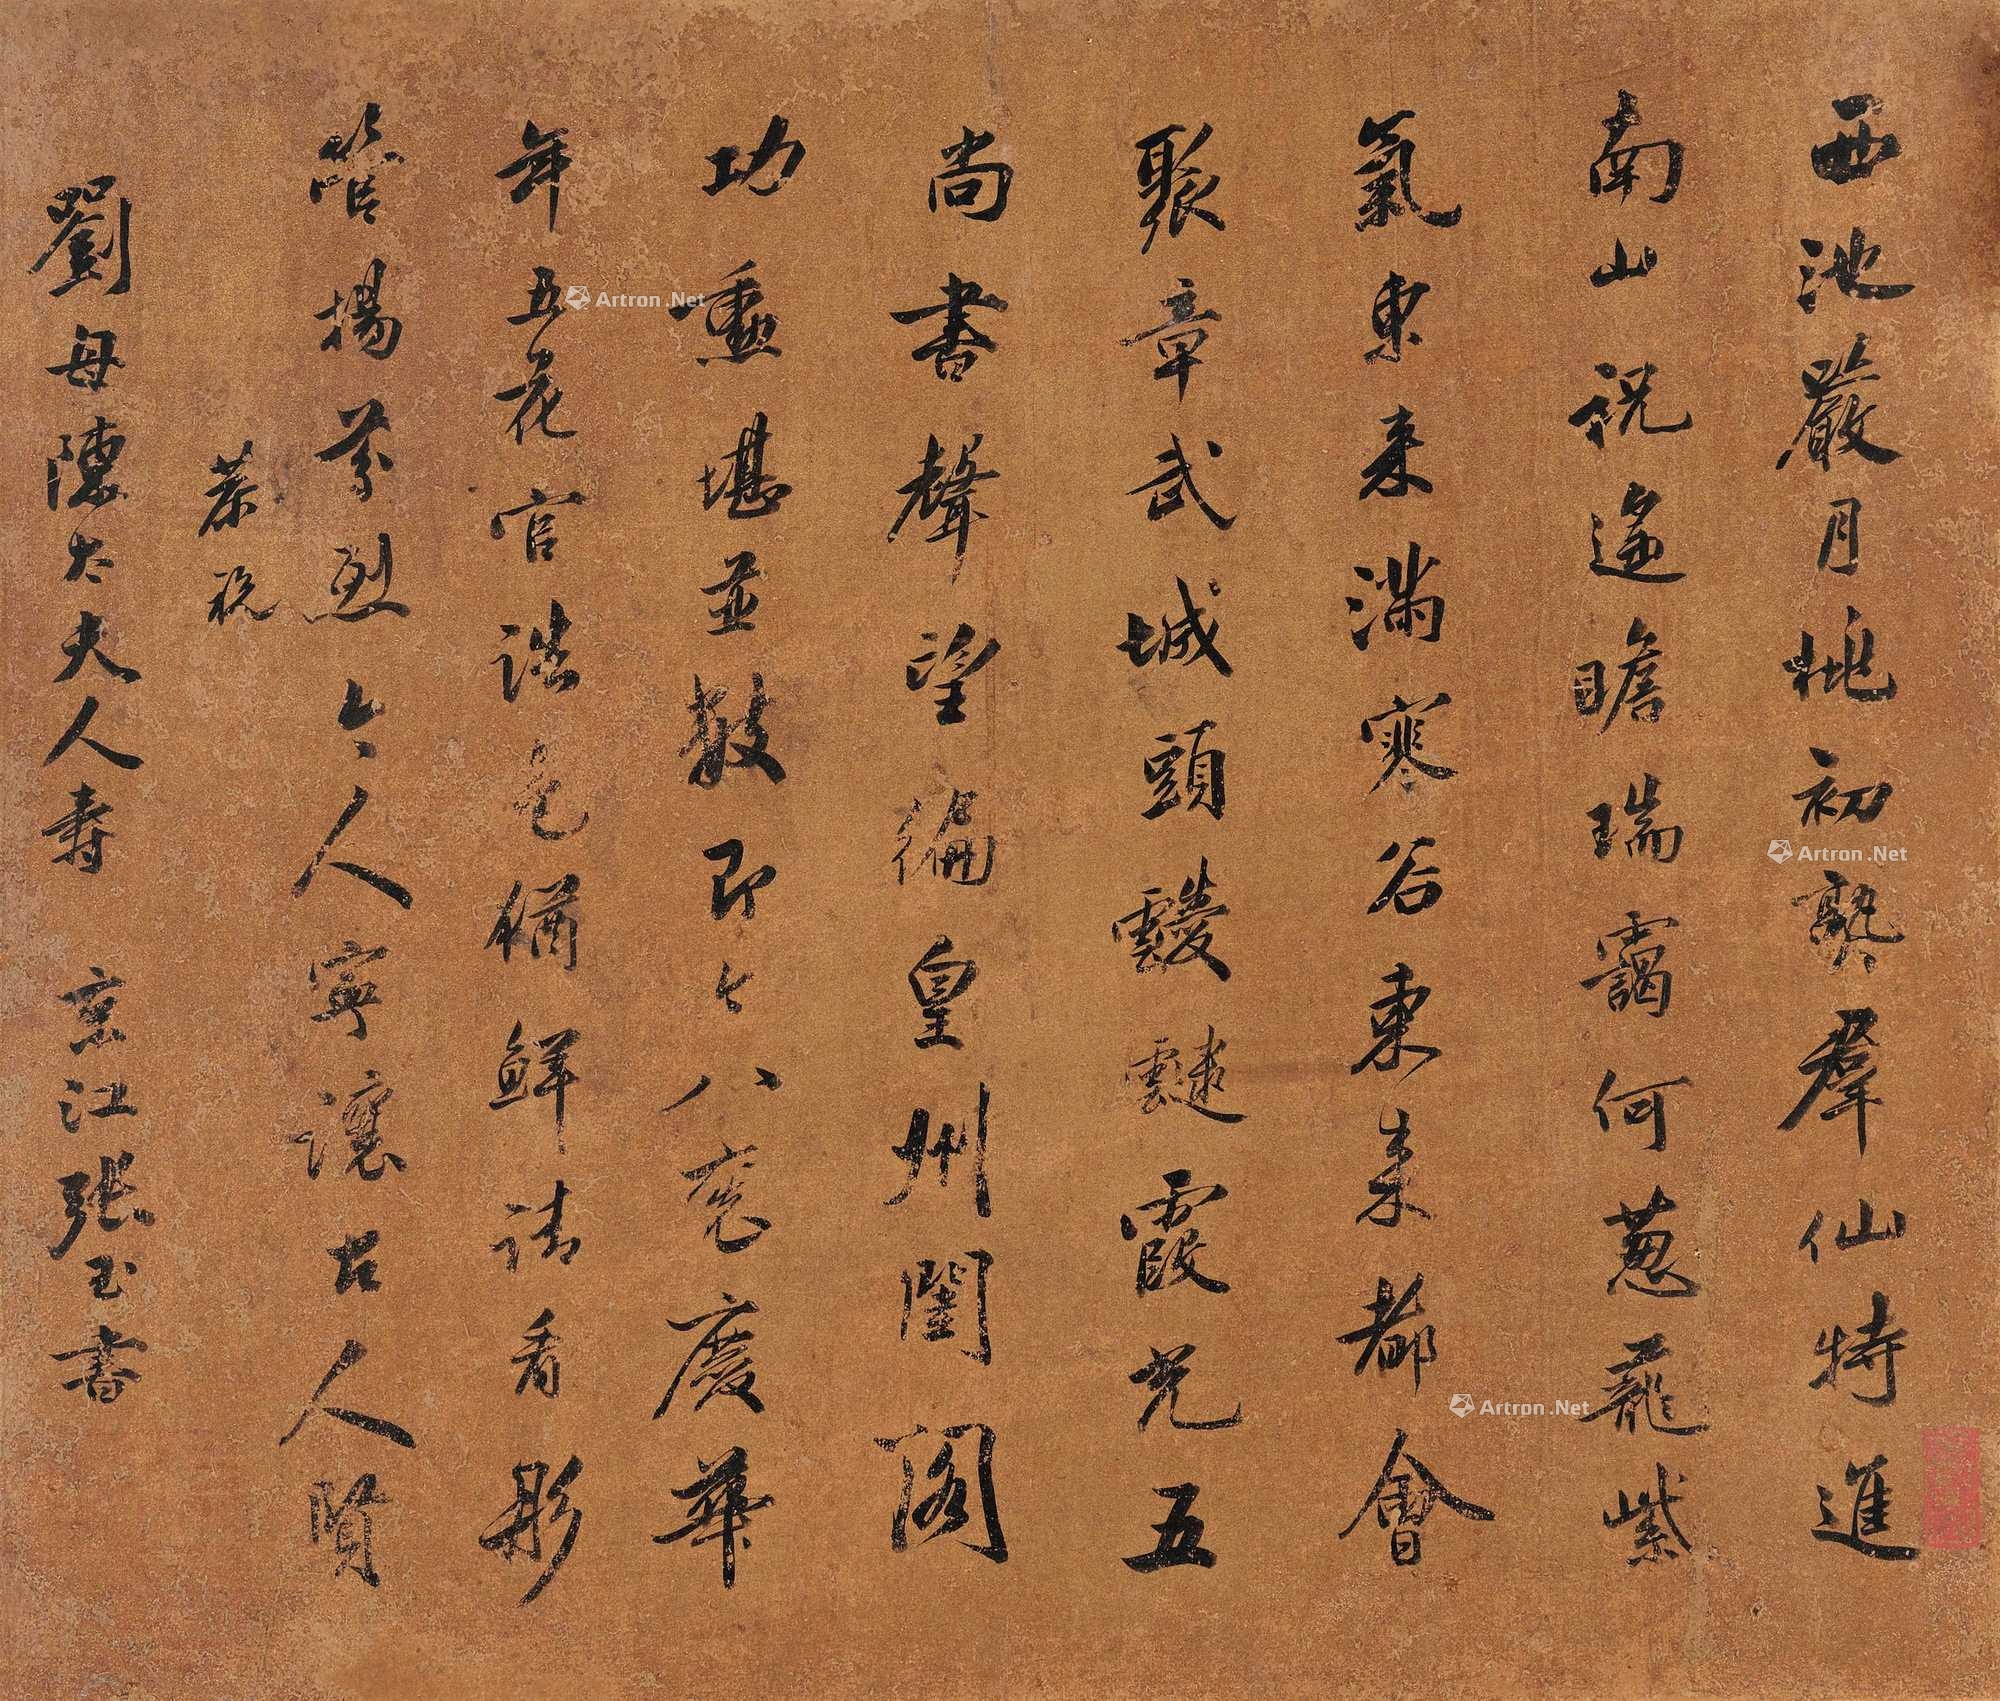 西池嚴月桃初熟羣仙特進
南山祝遙瞻瑞靄何蔥蘢紫
氣東來滿寒谷東來都會
聚章武城頭靉靆霞光五
尚書聲望徧皇州閨閣
功勳堪並數即今八袠慶華
年五花官誥色猶鮮請看彤
管揚芬烈今人寧讓古人賢
恭祝
劉母陳太夫人壽 京江張玉書
Artron.Net
Artron.Net
Artron.Net